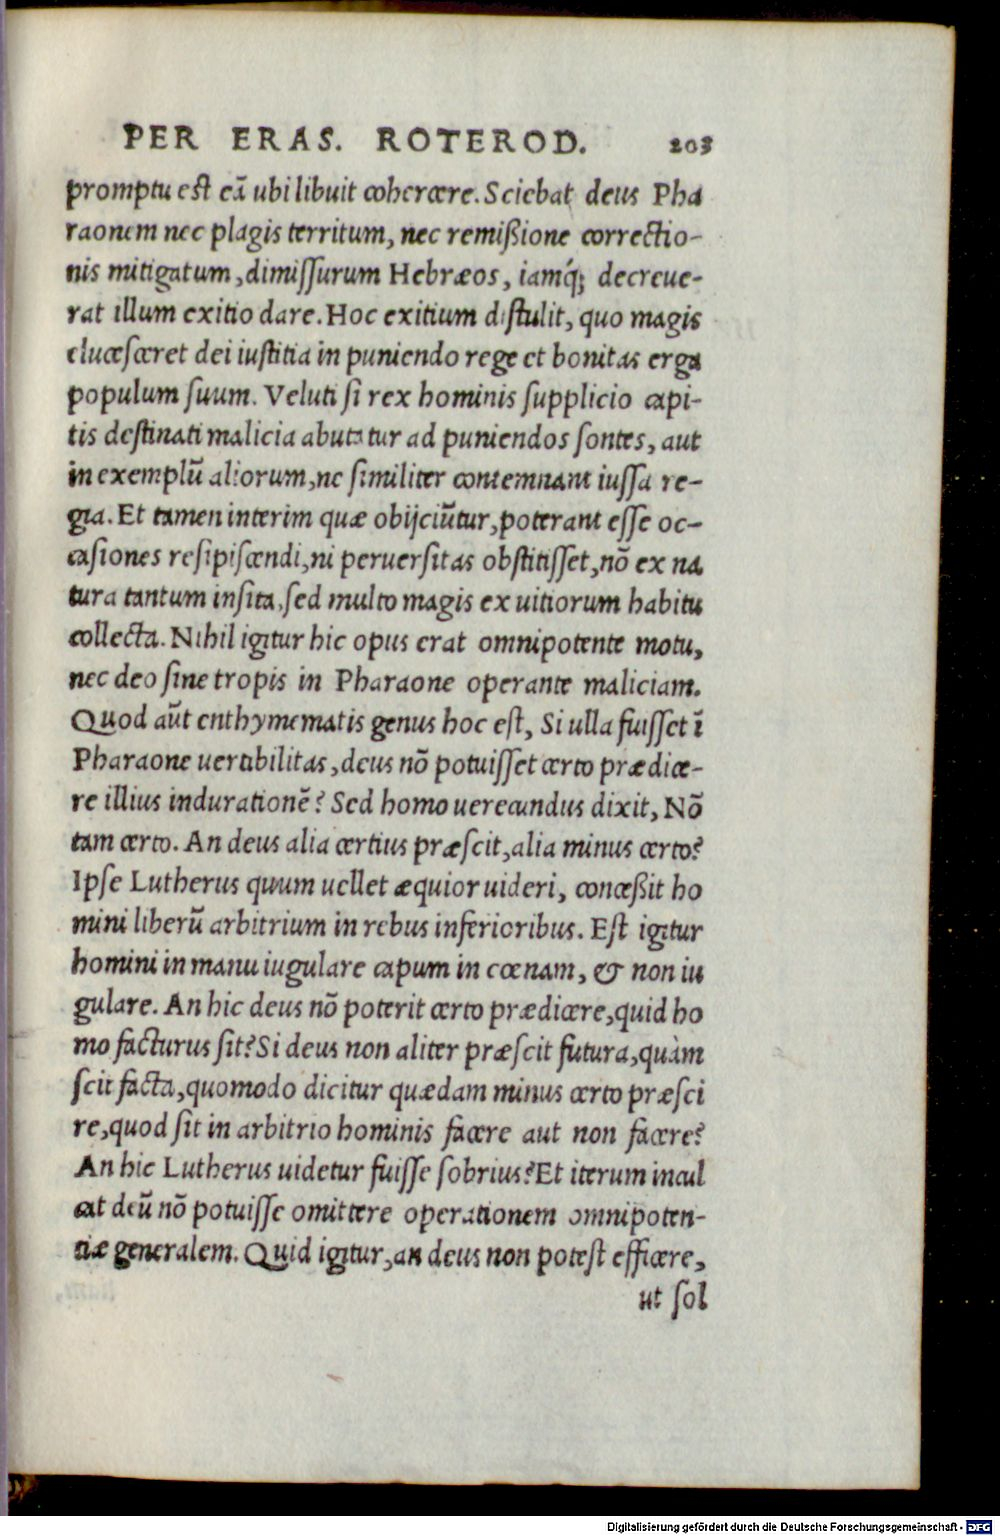 PER ERAS. ROTEROD. 203
promptu est eā ubi libuit cohercere. Sciebat deus Pha
raonem nec plagis territum, nec remißione correctio-
nis mitigatum, dimissurum Hebræos, iamq́; decreue-
rat illum exitio dare. Hoc exitium distulit, quo magis
elucesceret dei iustitia in puniendo rege et bonitas erga
populum suum. Veluti si rex hominis supplicio capi-
tis destinati malicia abutatur ad puniendos sontes, aut
in exemplū aliorum, ne similiter contemnant iussa re-
gia. Et tamen interim quæ obijciūtur, poterant esse oc-
casiones resipiscendi, ni peruersitas obstitisset, nō ex na
tura tantum insita, sed multo magis ex uitiorum habitu
collecta. Nihil igitur hic opus erat omnipotente motu,
nec deo sine tropis in Pharaone operante maliciam.
Quod aūt enthymematis genus hoc est, Si ulla fuisset ī
Pharaone uertibilitas, deus nō potuisset certo prædice-
re illius indurationē? Sed homo uerecundus dixit, Nō
tam certo. An deus alia certius præscit, alia minus certo?
Ipse Lutherus quum uellet æquior uideri, conceßit ho
mini liberū arbitrium in rebus inferioribus. Est igitur
homini in manu iugulare capum in cœnam, & non iu
gulare. An hic deus nō poterit certo prædicere, quid ho
mo facturus sit? Si deus non aliter præscit futura, quàm
scit facta, quomodo dicitur quædam minus certo præsci
re, quod sit in arbitrio hominis facere aut non facere?
An hic Lutherus uidetur fuisse sobrius? Et iterum incul
cat deū nō potuisse omittere operationem omnipoten-
tiæ generalem. Quid igitur, an deus non potest efficere,
ut sol
Digitalisierung gefördert durch die Deutsche Forschungsgemeinschaft - DFG